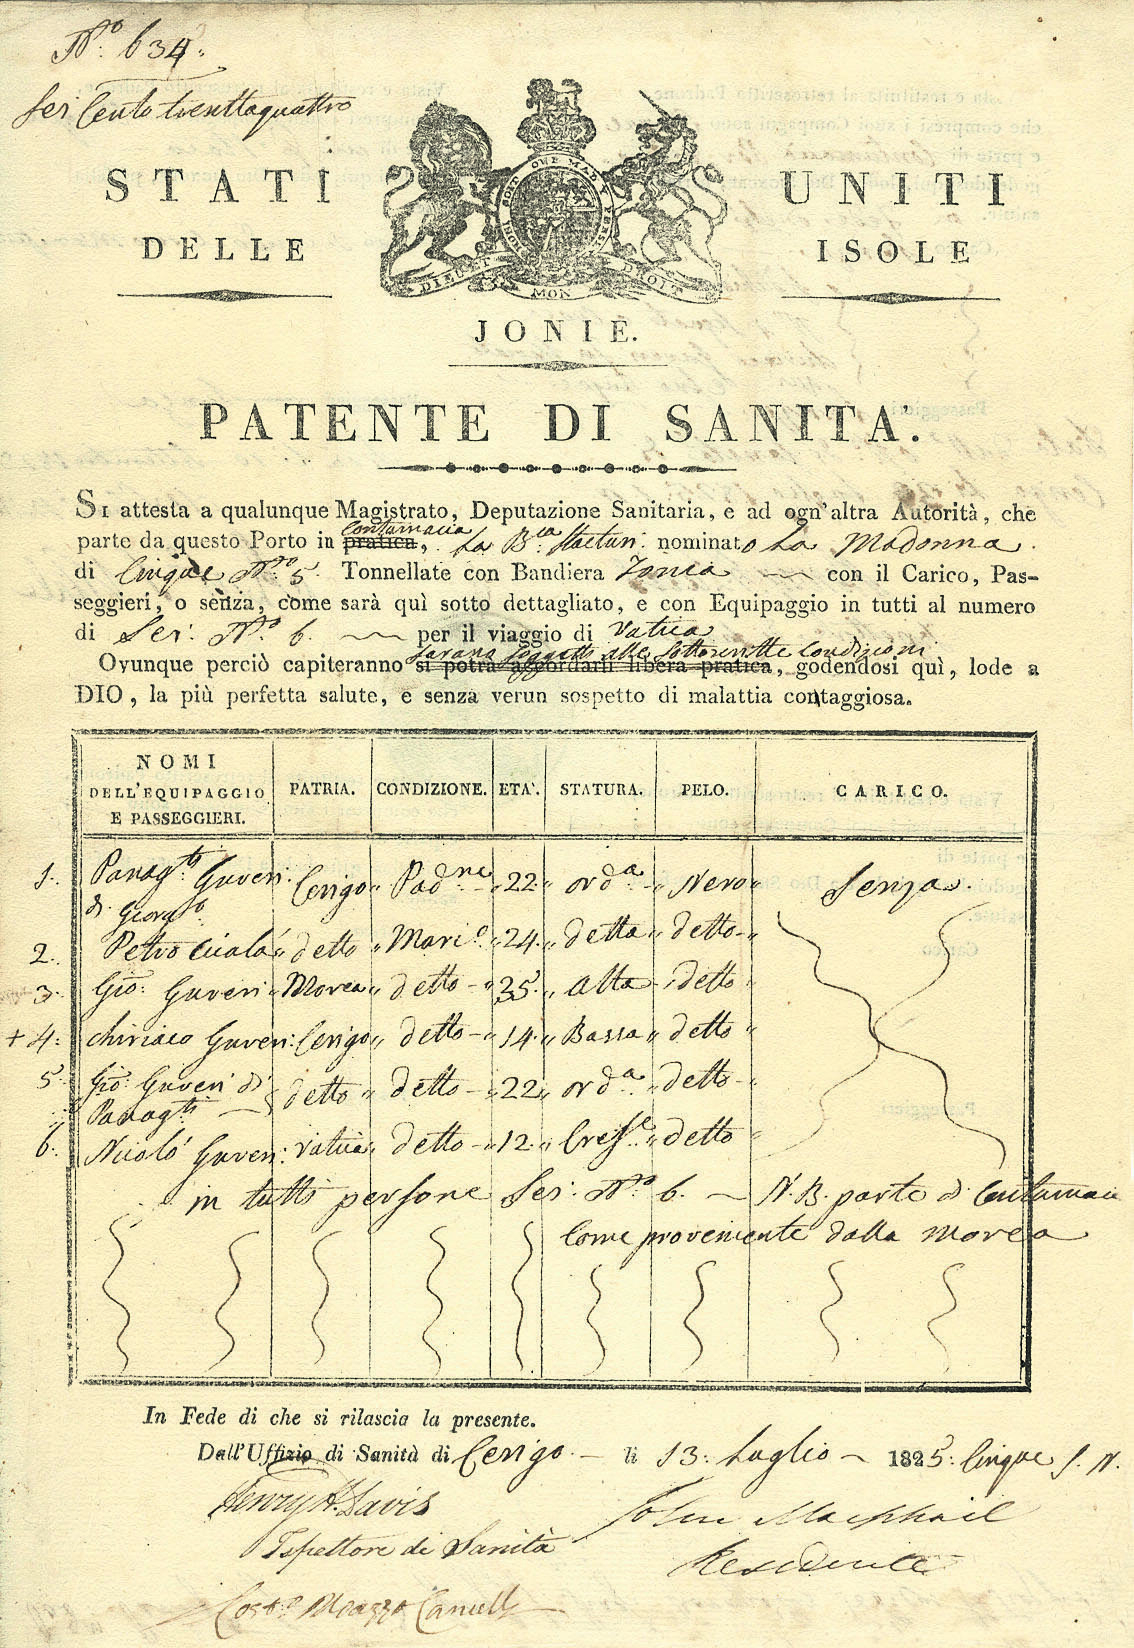 N.º 634.
Sei Cento trenttaquattro
STATI UNITI
HONI SOIT QUI MAL Y PENSE
DELLE ISOLE
DIEU ET MON DROIT
JONIE.
PATENTE DI SANITA.
SI attesta a qualunque Magistrato, Deputazione Sanitaria, e ad ogn'altra Autorità, che
contumacia
parte da questo Porto in pratica, La B.ca nominato La Madonna
di Cinque N.ro 5. Tonnellate con Bandiera Jonia con il Carico, Pas-
seggieri, o senza, come sarà quì sotto dettagliato, e con Equipaggio in tutti al numero
di Sei: N.ro 6. per il viaggio di Vatica
sarano soggetti alle sottoscritte Condizioni
Ovunque perciò capiteranno si potrà accordarli libera pratica, godendosi quì, lode a
DIO, la più perfetta salute, e senza verun sospetto di malattia contaggiosa.
NOMI DELL'EQUIPAGGIO E PASSEGGIERI. PATRIA. CONDIZIONE. ETA'. STATURA. PELO. CARICO.
1. Panag.ti Guveri di Giorg.to Cerigo Pad.ne 22 ord.a Nero Senza
2. Petro detto Mari.o 24 detta detto
3. Gio: Guveri Morea detto 35 Alta detto
+ 4: chiriaco Guveri: Cerigo detto 14 Bassa detto
5 Gio: Guveri di Panag.ti detto detto 22 ord.a detto
6. Nicolò Guveri: Vatica detto 12 Cres.e detto
in tutti persone Sei: N.ro 6. N.B. parte di Contumacia
Come proveniente dalla Morea
In Fede di che si rilascia la presente.
Dall'Uffizio di Sanità di Cerigo li 13: Luglio 1825: Cinque S. N.
Henry A. Davis John Macphail
Ispettore di Sanità Residente